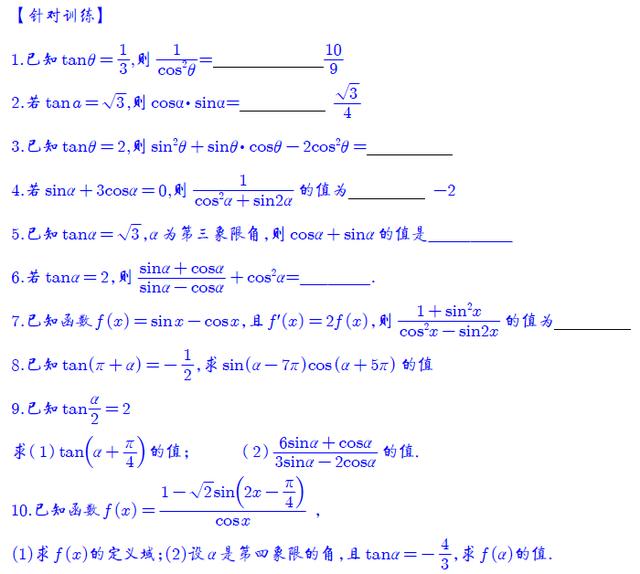 【针对训练】
1.已知 tanθ = 1/3,则 1/cos²θ = ________ 10/9
2.若 tan a = √3,则 cosα• sinα= ________ √3/4
3.已知 tanθ = 2,则 sin²θ + sinθ• cosθ − 2cos²θ = ________
4.若 sinα + 3cosα = 0,则 1/(cos²α + sin2α) 的值为________ −2
5.已知 tanα = √3,α 为第三象限角,则 cosα + sinα 的值是________
6.若 tanα = 2,则 (sinα + cosα)/(sinα − cosα) + cos²α= ________.
7.已知函数 f(x) = sinx − cosx,且 f′(x) = 2f(x),则 (1 + sin²x)/(cos²x − sin2x) 的值为________
8.已知 tan(π + α) = −1/2,求 sin(α − 7π)cos(α + 5π) 的值
9.已知 tan α/2 = 2
求(1) tan(α + π/4) 的值; (2) (6sinα + cosα)/(3sinα − 2cosα) 的值.
10.已知函数 f(x) = (1 − √2sin(2x − π/4))/cosx ,
(1)求 f(x)的定义域;(2)设 α 是第四象限的角,且 tanα = −4/3,求 f(α)的值.